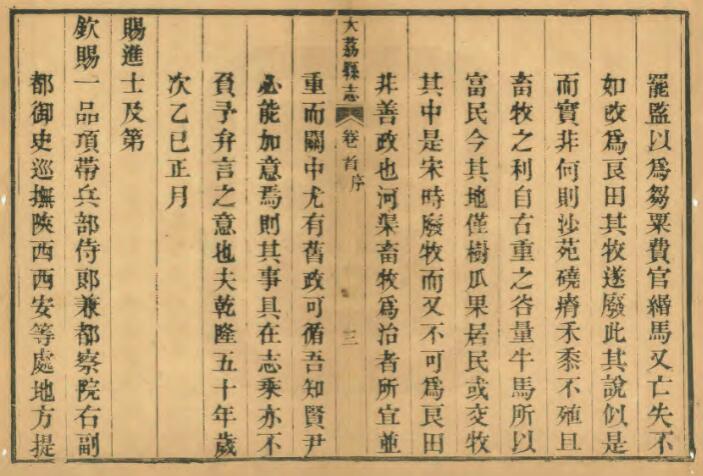 罷監以爲芻粟費官緡馬又亡失不
如改爲良田其牧遂廢此其說似是
而實非何則沙苑磽瘠禾黍不殖且
畜牧之利自古重之谷量牛馬所以
富民今其地僅樹瓜果居民或交牧
其中是宋時廢牧而又不可爲良田
非善政也河渠畜牧爲治者所宜並
大荔縣志 卷首 序 三
重而關中尤有舊政可循吾知賢尹
必能加意焉則其事具在志乘亦不
負予弁言之意也夫乾隆五十年歲
次乙巳正月
賜進士及第
欽賜一品項帶兵部侍郎兼都察院右副
都御史巡撫陝西西安等處地方提